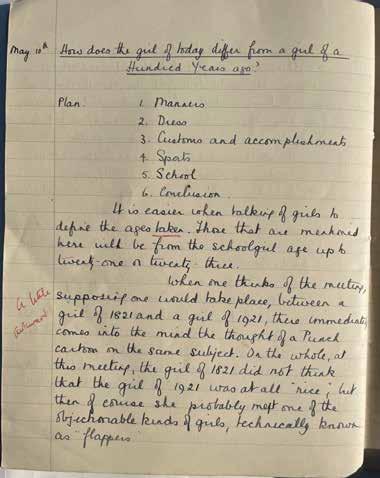 May 10th How does the girl of today differ from a girl of a
Hundred Years ago?
Plan. 1. Manners
2. Dress
3. Customs and accomplishments
4. Sports
5. School
6. Conclusion.
It is easier when talking of girls to
define the ages taken. Those that are mentioned
here will be from the schoolgirl age up to
twenty-one or twenty-three.
When one thinks of the meeting,
supposing one would take place, between a
girl of 1821 and a girl of 1921, there immediately
comes into the mind the thought of a Punch
cartoon on the same subject. On the whole, at
this meeting, the girl of 1821 did not think
that the girl of 1921 was at all "nice", but
then of course she probably met one of the
objectionable kinds of girls, technically known
as "flappers"